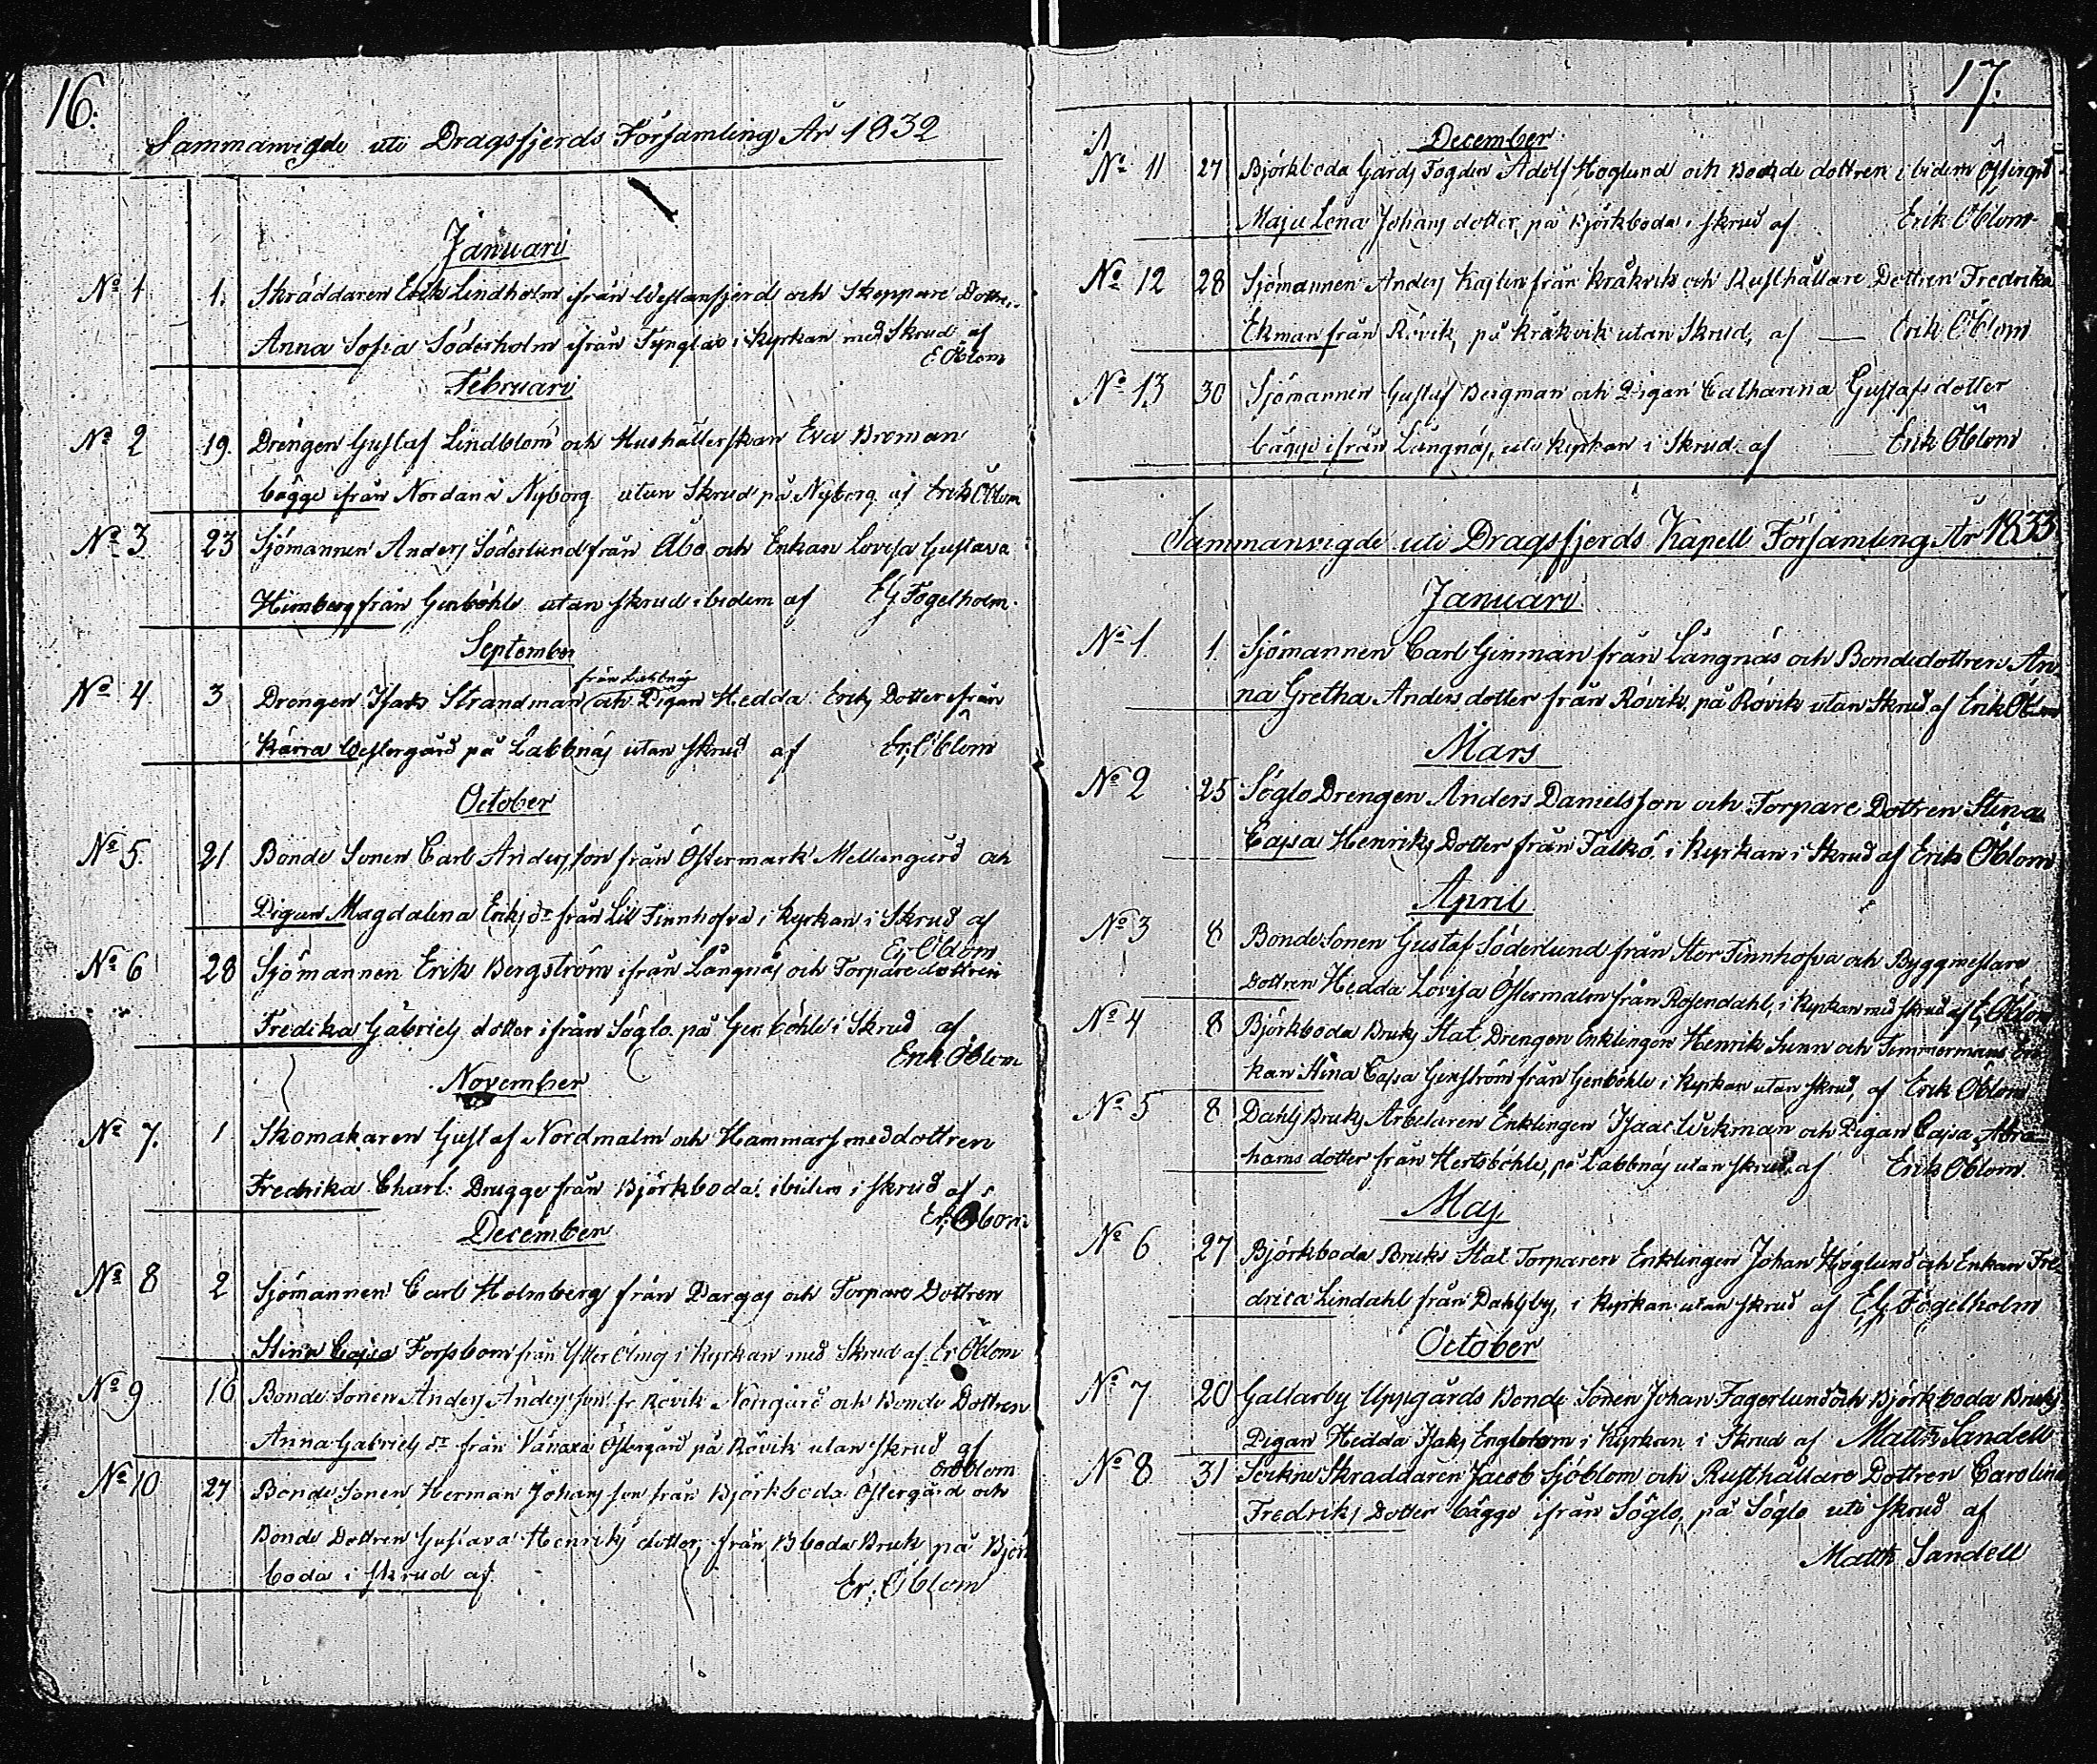 16.
Sammanvigde uti Dragsfjerds Församling År 1832
Januari
No 1 1. Skräddaren Erik Lindholm ifrån Westanfjerd och Skeppare Dottr.
Anna Sofia Söderholm ifrån Tynglax i Kyrkan med Skrud af
E Öblom
Februari
No 2 19. Drengen Gustaf Lindblom och Hushållerskan Eva Broman
bägge ifrån Nordanå Nyborg utan Skrud på Nyborg af Erik Öblom
No 3 23 Sjömannen Anders Söderlund från Åbo och Enkan Lovisa Gustava
Himberg från Genböhle utan skrud ibidem af EG Fogelholm.
September
från Labbnäs
No 4. 3 Drengen Isak Strandman och Pigan Hedda Eriks Dotter ifrån
Kärra Westergård på Labbnäs utan skrud af Er. Öblom
October
No 5. 21 Bonde Sonen Carl Andersson från Östermark Mellangård och
Pigan Magdalena Eriks dr från Lill Finnhofva i Kyrkan i Skrud af
Er. Öblom
No 6 28 Sjömannen Erik Bergström ifrån Långnäs och Torpare dottren
Fredika Gabriels dotter ifrån Söglo på Genböhle i Skrud af
Erik Öblom
November
No 7. 1 Skomakaren Gustaf Nordmalm och Hammarsmeddottren
Fredrika Charl. Drugge från Björkboda ibidem i skrud af
Er. Öblom
December
No 8 2 Sjömannen Carl Holmberg från Pargas och Torpare Dottren
Stina Cajsa Forsbom från Ytter Ölmos i Kyrkan med Skrud af Er Öblom
No 9 16 Bonde Sonen Anders Andersson fr Rövik Norrgård och Bonde Dottren
Anna Gabriels dr från Vänoxa Östergård på Rövik utan skrud af
Er Öblom
No 10 27 Bonde Sonen Herman Johansson från Björkboda Östergård och
Bonde Dottren Gustava Henriks dotter, från Bboda Bruk på Björk
boda i skrud af Er. Öblom
17.
December
No 11 27 Björkboda Gårds Fogden Adolf Höglund och Bonde dottren ibidem Östergrd
Maja Lena Johans dotter, på Björkboda i skrud af Erik Öblom
No 12 28 Sjömannen Anders Kajlin från Kråkvik och Rusthållare Dottren Fredrika
Ekman från Rövik, på Kråkvik utan Skrud, af — Erik Öblom
No 13 30 Sjömannen Gustaf Bergman och Pigan Catharina Gustafs dotter
bägge ifrån Långnäs, uti kyrkan i Skrud af — Erik Öblom
Sammanvigde uti Dragsfjerds Kapell Församling År 1833
Januari
No 1. 1 Sjömannen Carl Ginman från Långnäs och Bondedottren An
na Gretha Anders dotter från Rövik på Rövik utan Skrud af Erik Öblom
Mars
No 2 25 Söglo Drengen Anders Danielsson och Torpare Dottren Stina
Cajsa Henriks Dotter från Falkö i Kyrkan i Skrud af Erik Öblom
April
No 3 8 Bonde Sonen Gustaf Söderlund från Stor Finnhofva och Byggmestare
Dottren Hedda Lovisa Östermalm från Rosendahl, i Kyrkan med skrud af E. Öblom
No 4 8 Björkboda Bruks Stat Drengen Enklingen Henrik Sunn och Timmermans En
kan Stina Cajsa Genström från Genböhle i Kyrkan utan skrud, af Erik Öblom
No 5 8 Dahls Bruks Arbetaren Enklingen Isaac Wikman och Pigan Cajsa Abra
hams dotter från Hertsböhle, på Labbnäs utan skrud af Erik Öblom.
Maj
No 6 27 Björkboda Bruks Stat Torparen Enklingen Johan Höglund och Enkan Fre
drica Lindahl från Dahlsby, i Kyrkan utan skrud af EG Fogelholm
October
No 7 20 Gallarby Uppgårds Bonde Sonen Johan Fagerlund och Björkboda Bruks
Pigan Hedda Isaks Englblom i Kyrkan i Skrud af Matth Sandell
No 8 31 Sockne Skraddaren Jacob Sjöblom och Rusthållare Dottren Carolina
Fredriks Dotter bägge ifrån Söglo, på Söglo uti skrud af
Matth Sandell